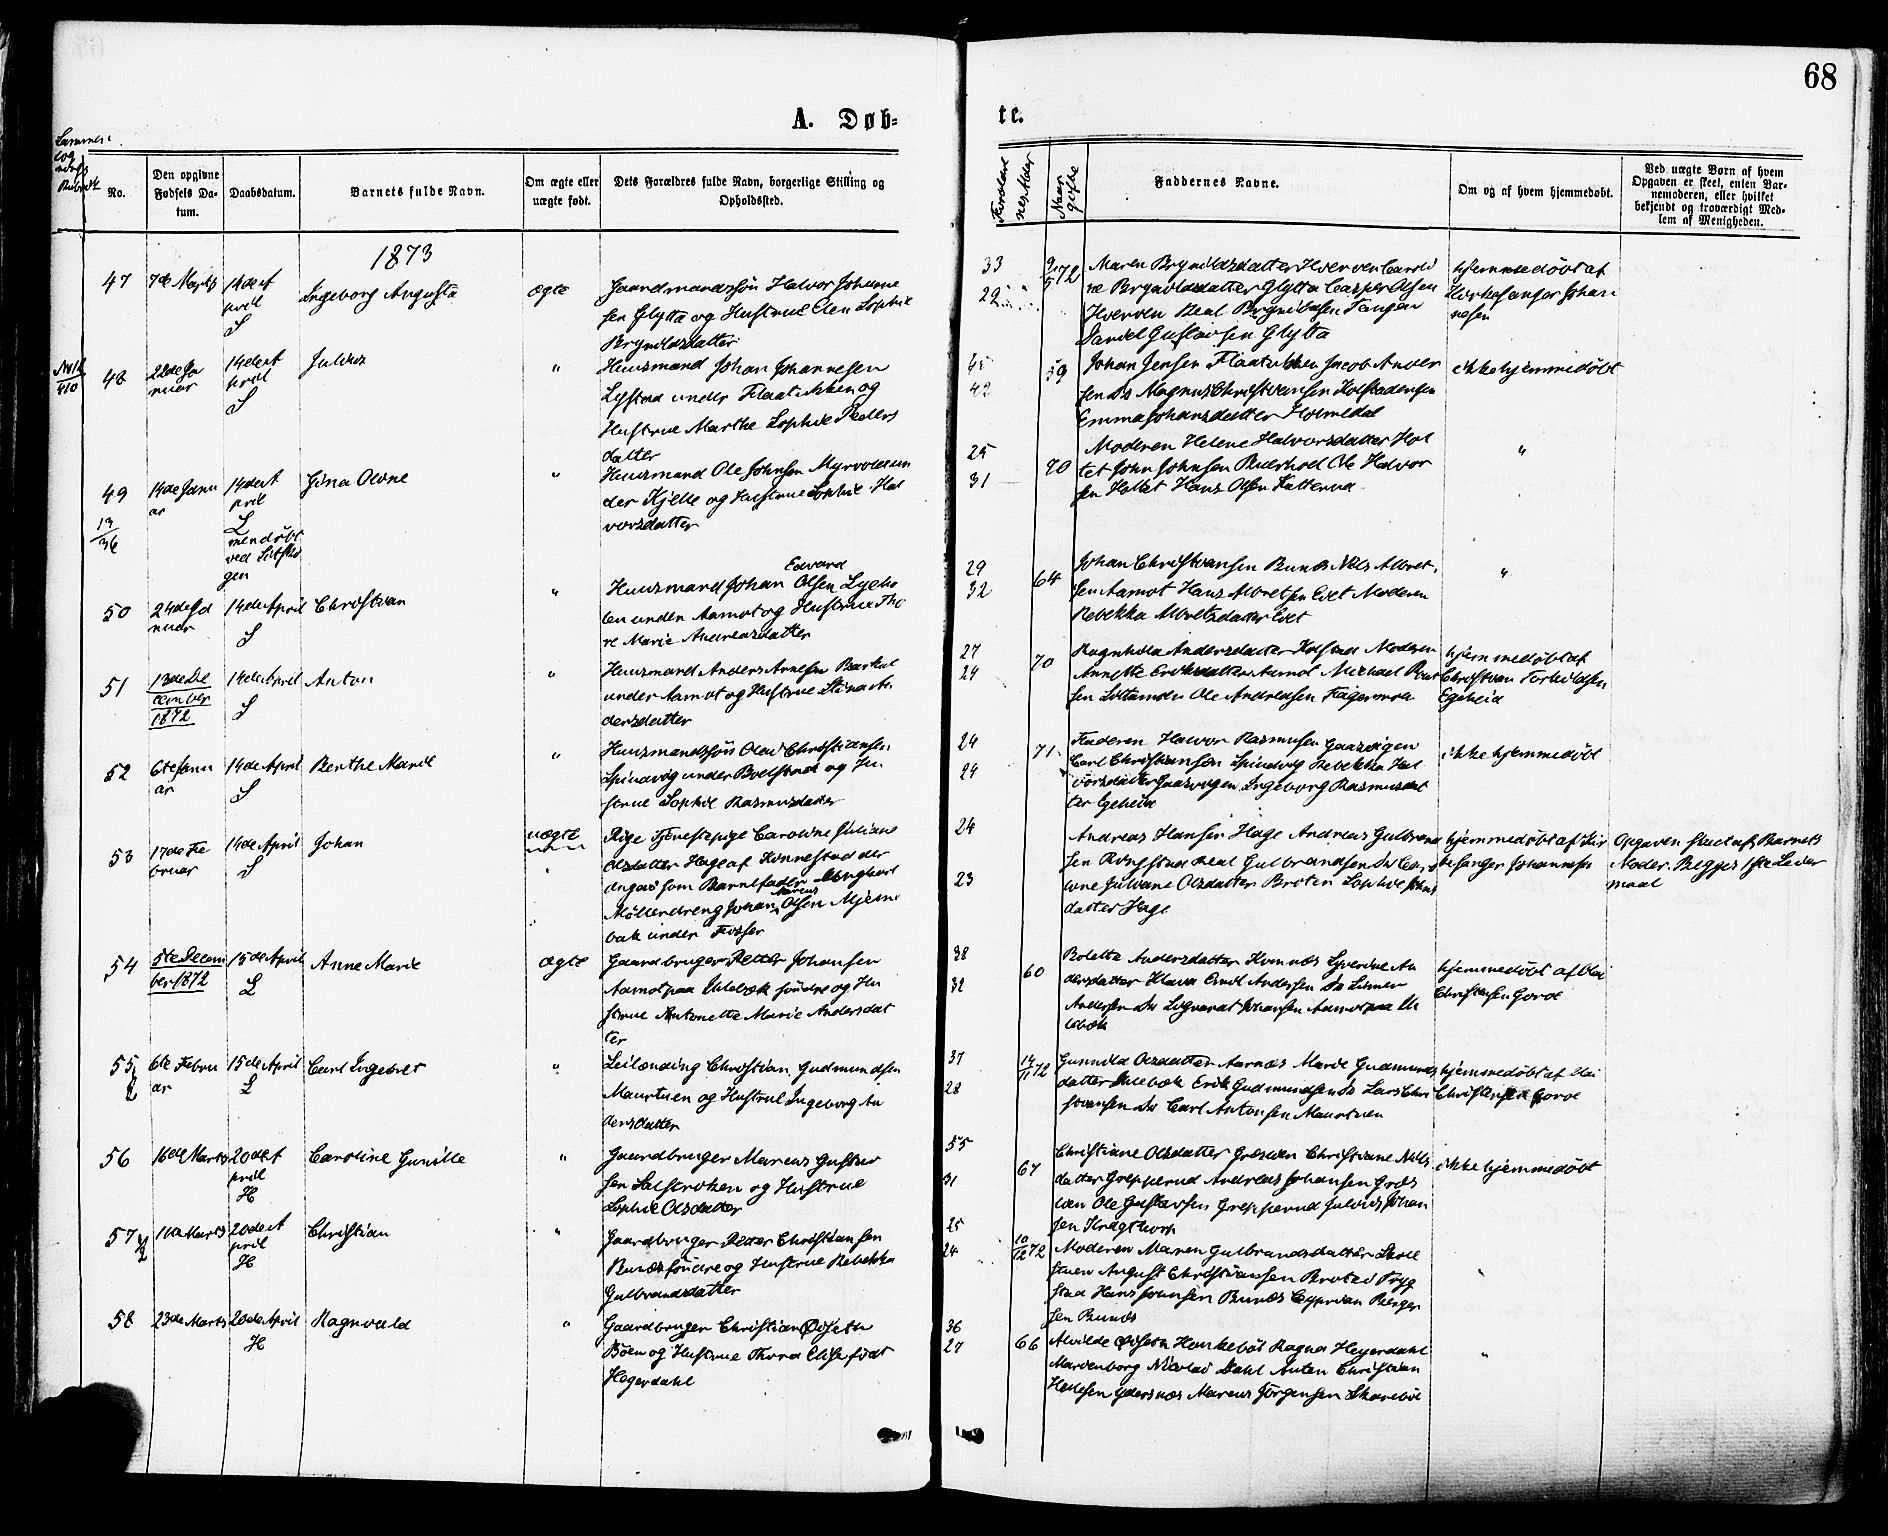 68
A. Døb-
te.
No.
Den opgivne Fødsels Da-
tum.
Daabsdatum.
Barnets fulde Navn.
Om ægte eller
uægte født.
Dets Forældres fulde Navn, borgerlige Stilling og
Opholdssted.
Forældrenes Alder
Naar gifte
Faddernes Navne.
Om og af hvem hjemmedøbt.
Ved uægte Børn af hvem
Opgaven er skeet, enten Bar-
nemoderen, eller hvilket
bekjendt og troværdigt Med-
lem af Menigheden.
1873
47
7de Marts
14de A
pril
S
Ingeborg Augusta
ægte
Gaardmandssøn Halvor Johanne
sen Glytta og Hustrue Elen Sophie
Brynildsdatter
33
29
9/5 72
Maren Brynildsdatter Hverven Caroli
ne Brynildsdatter Glytta Casper Olsen
Hverven Beal Brynildsen Tangen
Gustavsen Glytta
hjemmedøbt af
Kirkesanger Johan
nesen
48
22de Ja
nuar
14de A
pril
S
Julius
"
Huusmand Johan Johannesen
Lystad under Flaatikken og
Hustrue Marthe Sophie Peders
datter
45
42
59
Johan Jensen Flaatikken Jacob Ander
sen Ds Magnus Christiansen
Emma Johansdatter Holmedal
ikke hjemmedøbt
49
13/36
14de Janu
ar
14de A
pril
L
men døbt
ved
gen
Gina Oline
"
Huusmand Ole Johnsen Myrvold un
der Kjelle og Hustrue Sophie Hal
vorsdatter
25
31
70
Moderen Helene Halvorsdatter Hol
tet John Johnsen Ole Halvor
sen Holtet Hans Olsen
"
50
24de Ja
nuar
14de April
S
Christian
"
Edvard
Huusmand Johan Olsen
under Aamot og Hustrue Tho
re Marie Andreasdatter
29
32
64
Johan Christiansen Nils Albret
sen Aamot Hans Albretsen Evet Moderen
Rebekka Albretsdatter Evet
"
51
13de De
cember
1872
14de April
S
Anton
"
Huusmand Anders Arnesen
under Aamot og Hustrue Stina An
dersdatter
27
24
70
Ragnhild Andersdatter Kolstad Moderen
Annette Eriksdatter Aamot Michael
sen Ole Andreasen
hjemmedøbt af
Christian Torkildsen
Egeheia
52
6te Janu
ar
14de April
S
Berthe Marie
"
Huusmandssøn Olai Christiansen
Spindvig under Boelstad og Hu
strue Sophie Rasmusdatter
24
24
71
Faderen Halvor Rasmusen Gaasvigen
Carl Christiansen Spindvig Rebekka Hal
vorsdatter Gaasvigen Ingeborg Rasmusdat
ter Egeheia
ikke hjemmedøbt
53
17de Fe
bruar
14de April
S
Johan
uægte
Pige Tjenestepige Caroline Juliane
Olsdatter Hage af Kinnestad der
angav som Barnefader Ungkarl
Marius
Møllerdreng Johan Olsen Mjerme
bak under Fosser
24
23
Andreas Hansen Hage Andreas Gulbrand
sen Ringstad Beal Gulbrandsen Ds
line Juliane Olsdatter Broten Sophie Johns
datter Hage
hjemmedøbt af Kir
kesanger Johannesen
Opgaven skeet af Barnets
Moder. Begges 1ste Leier
maal
54
5te Decem
ber 1872
15de April
L
Anne Marie
ægte
Gaardbruger Petter Johansen
Aamot paa Ihlebæk søndre og Hu
strue Antonette Marie Andersdat
ter
38
32
60
Bolette Andersdatter Homnæs Syverine An
dersdatter Emil Andersen Ds Simen
Andersen Ds Johansen Aamot paa Ih
lebæk
hjemmedøbt af Olai
Christensen Goroe
55
6te Febru
ar
15de April
L
Carl Ingebret
"
Leilænding Christian Gudmundsen
Maurtuen og Hustrue Ingeborg An
dersdatter
37
28
14/11 72
Gunnild Olsdatter Aarnæs Marie Gudmunds
datter Ihlebæk Erik Gudmundsen Ds Lars Chri
stiansen Ds Carl Antonsen Maurtuen
hjemmedøbt af Olai
Christensen Goroe
56
16de Marts
20de A
pril
H
Caroline Gunille
"
Gaardbruger Marcus Gustav
sen og Hustrue
Sophie Olsdatter
55
31
67
Christiane Olsdatter Christiane Nils
datter Grepperud Andreas Johansen
Ole Gustavsen Grepperud Julius Johan
sen Kragtorp
ikke hjemmedøbt
57
1ste Marts
20de A
pril
H
Christian
"
Gaardbruger Petter Christiansen
Bunæs søndre og Hustrue Rebekka
Gulbrandsdatter
25
24
10/12 72
Moderen Maren Gulbrandsdatter
August Christiansen Broten Tryg
stad Hans Johansen Bunæs Cyprian Berger
sen Bunæs
"
58
23de Marts
20de April
H
Ragnvald
"
Gaardbruger Christian
Bøen og Hustrue Thora Elise født
Heyerdahl
36
27
66
Alvilde Hankebøl Ragna Heyerdahl
Mardenborg Nicolai Dahl Anton Christian
Hellesen Ydersnæs Marcus Jørgensen Skarebøl
"